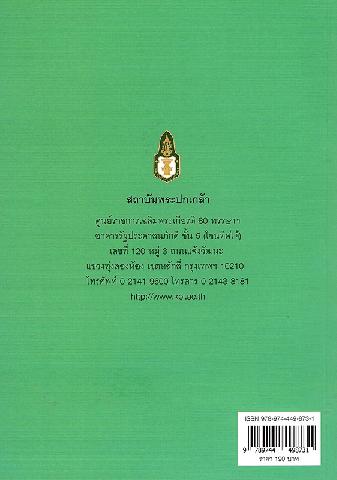 สถาบันพระปกเกล้า
ศูนย์ราชการเฉลิมพระเกียรติ 80 พรรษาฯ
อาคารรัฐประศาสนภักดี ชั้น 5 (โซนทิศใต้)
เลขที่ 120 หมู่ 3 ถนนแจ้งวัฒนะ
แขวงทุ่งสองห้อง เขตหลักสี่ กรุงเทพฯ 10210
โทรศัพท์ 0 2141 9600 โทรสาร 0 2143 8181
http://www.kpi.ac.th
ISBN 978-974-449-673-1
ราคา 190 บาท